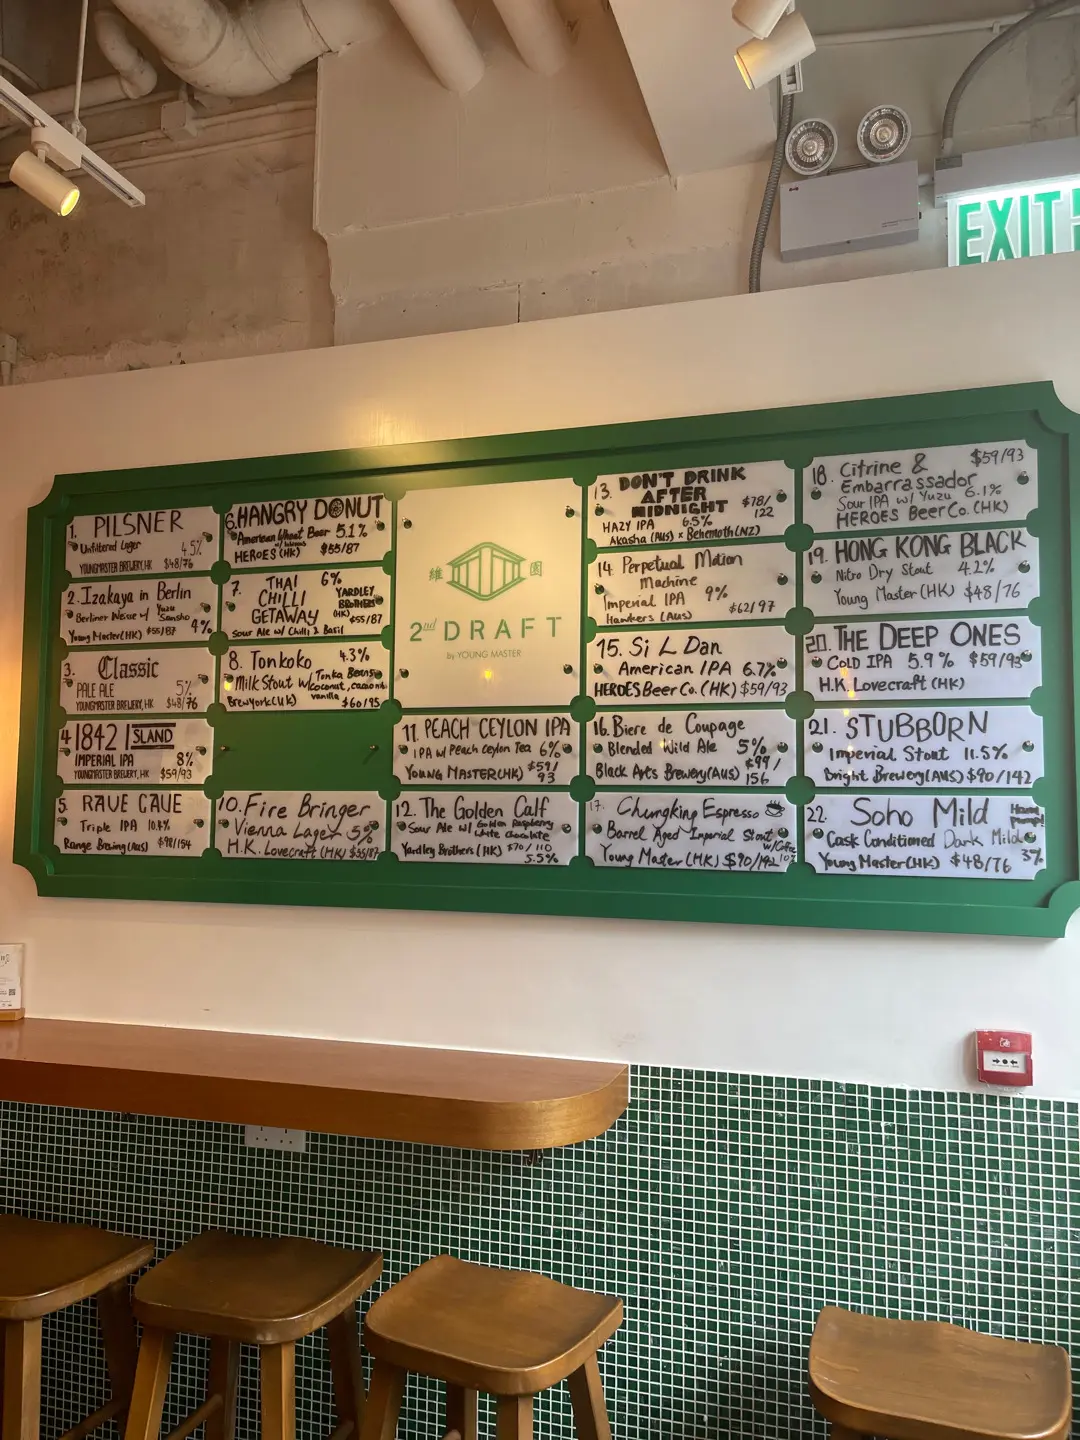 EXIT
1. PILSNER
Unfiltered Lager 4.5%
YOUNGMASTER BREWERY, HK $48/76
2. Izakaya in Berlin
Berliner Weisse w/ Yuzu Sansho
Young Master (HK) $55/87 4%
3. Classic
PALE ALE 5%
YOUNGMASTER BREWERY, HK $48/76
4 1842 ISLAND
IMPERIAL IPA 8%
YOUNGMASTER BREWERY, HK $59/93
5. RAVE CAVE
Triple IPA 10.4%
Range Brewing (AUS) $98/154
6. HANGRY DONUT
American Wheat Beer 5.1%
HEROES (HK) $55/87
7. THAI CHILLI GETAWAY 6%
YARDLEY BROTHERS (HK) $55/87
Sour Ale w/ Chilli & Basil
8. Tonkoko 4.3%
Milk Stout w/ Tonka Beans, coconut, vanilla
Brewyork (UK) $60/95
10. Fire Bringer
Vienna Lager 5%
H.K. Lovecraft (HK) $55/87
維園
2nd DRAFT
by YOUNG MASTER
11. PEACH CEYLON IPA
IPA w/ Peach Ceylon Tea 6%
YOUNG MASTER (HK) $59/93
12. The Golden Calf
Sour Ale w/ Golden Raspberry White Chocolate
Yardley Brothers (HK) $70/110
5.5%
13. DON'T DRINK
AFTER
MIDNIGHT $78/122
HAZY IPA 6.5%
Akasha (AUS) x Behemoth (NZ)
14 Perpetual Motion
Machine
Imperial IPA 9%
Hawkers (AUS) $62/97
15. Si L Dan
American IPA 6.7%
HEROES Beer Co. (HK) $59/93
16. Biere de Coupage
Blended Wild Ale 5%
Black Arts Brewery (AUS) $99/156
17. Chungking Espresso
Barrel Aged Imperial Stout w/ Coffee
Young Master (HK) $90/142 10%
18. Citrine & $59/93
Embarrassador
Sour IPA w/ Yuzu 6.1%
HEROES Beer Co. (HK)
19. HONG KONG BLACK
Nitro Dry Stout 4.2%
Young Master (HK) $48/76
20. THE DEEP ONES
COLD IPA 5.9% $59/93
H.K. Lovecraft (HK)
21. STUBBORN
Imperial Stout 11.5%
Bright Brewery (AUS) $90/142
22 Soho Mild Hand pump!
Cask Conditioned Dark Mild
Young Master (HK) $48/76 3%